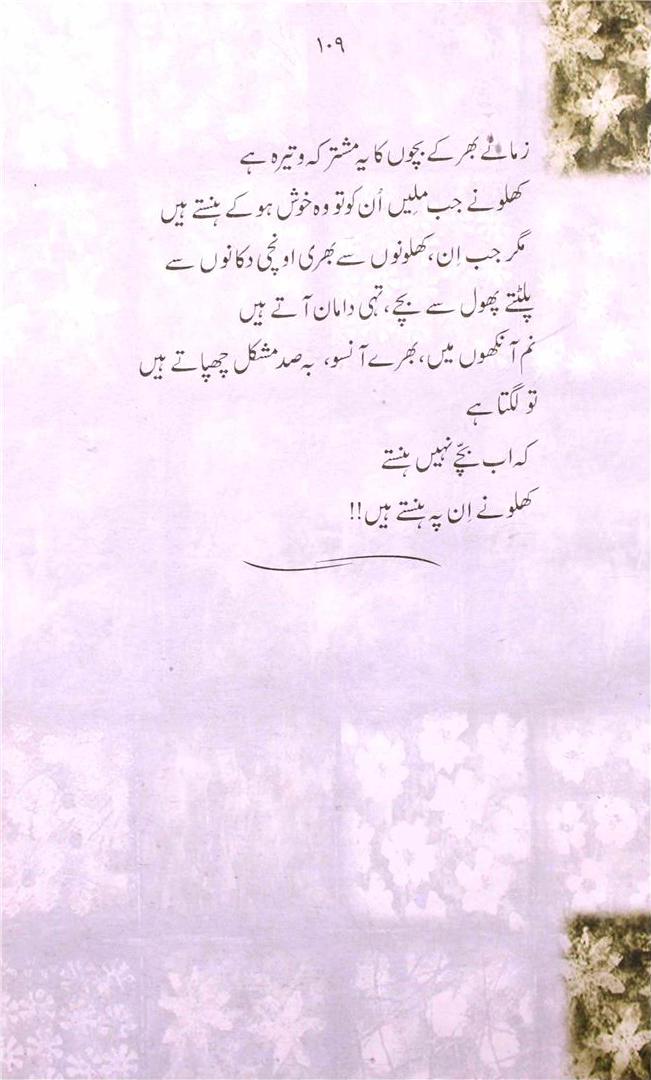 ۱۰۹
زمانے بھر کے بچوں کا یہ مشترکہ وتیرہ ہے
کھلونے جب مِلیں اُن کو تو وہ خوش ہو کے ہنستے ہیں
مگر جب اِن، کھلونوں سے بھری اونچی دکانوں سے
پلٹتے پھول سے بچے، تہی دامان آتے ہیں
نم آنکھوں میں، بھرے آنسو، بہ صد مشکل چھپاتے ہیں
تو لگتا ہے
کہ اب بچّے نہیں ہنستے
کھلونے اِن پہ ہنستے ہیں!!